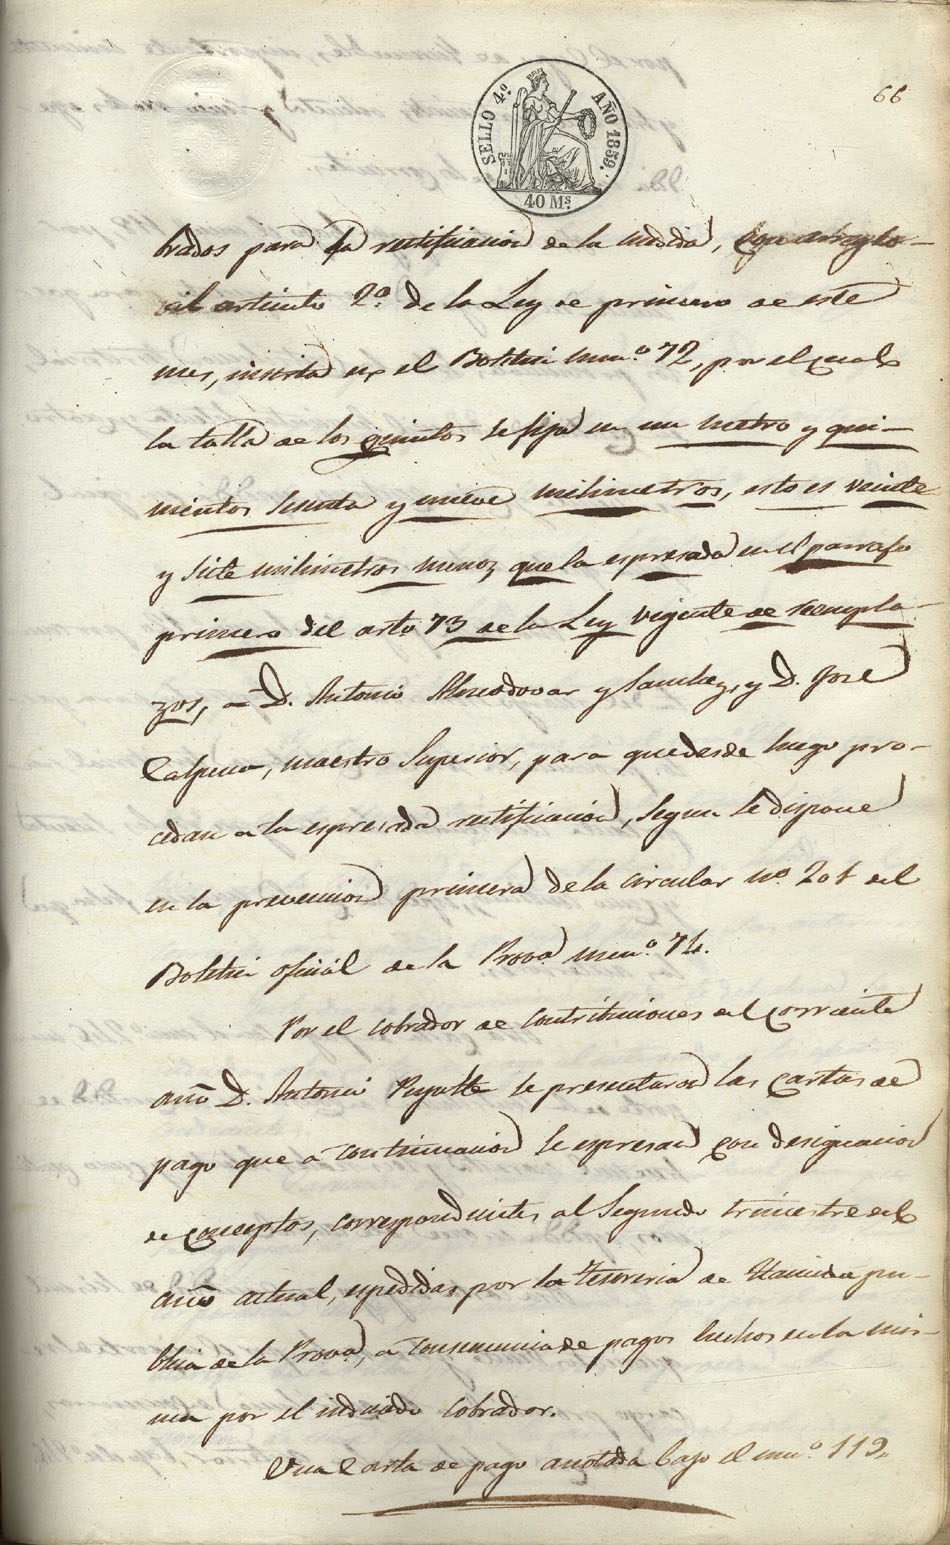 66
SELLO 4.º AÑO 1859.
40 Ms
brados para la rectificacion de la medida, con arreglo
al articulo 2º de la Ley de primero de este
mes, inserta en el Boletin num.º 72, por el cual
la talla de los quintos se fija en un metro y qui-
nientos sesenta y nueve milimetros, esto es veinte
y siete milimetros menos que la espresada en el parrafo
primero del arto 73 de la Ley vigente de reempla-
zos, a D. Antonio Almodovar y Sanchez, y D. José
Calpena, maestro Superior, para que desde luego pro-
cedan a la espresada rectificacion, segun se dispone
en la prevencion primera de la circular nº 201 del
Boletin oficial de la Prova num.º 74.
Por el cobrador de contribuciones del corriente
año D. Antonio se presentaron las cartas de
pago que a continuacion se espresan con designacion
de conceptos, correspondientes al Segundo trimestre del
año actual, espedidas por la Tesoreria de Hacienda pu-
blica de la Prova, a consecuencia de pagos hechos en la mis-
ma por el indicado cobrador.
Una Carta de pago anotada bajo el num.º 119,